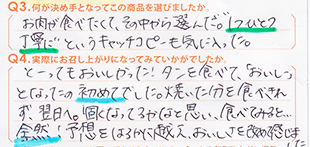 Q3.何が決め手となってこの商品を選びましたか。
お肉が食べたくて、その中から選んだ。「1つひとつ
丁寧に」というキャッチコピーも気に入った。
Q4.実際にお召し上がりになってみていかがでしたか。
とーってもおいしかった！タンを食べて、「おいしっ」
となったのは初めてでした。焼いた分を食べきれ
ず、翌日へ。固くなってるかなと思い、食べてみると…
全然！予想をはるかに越え、おいしさを改め感じま
した